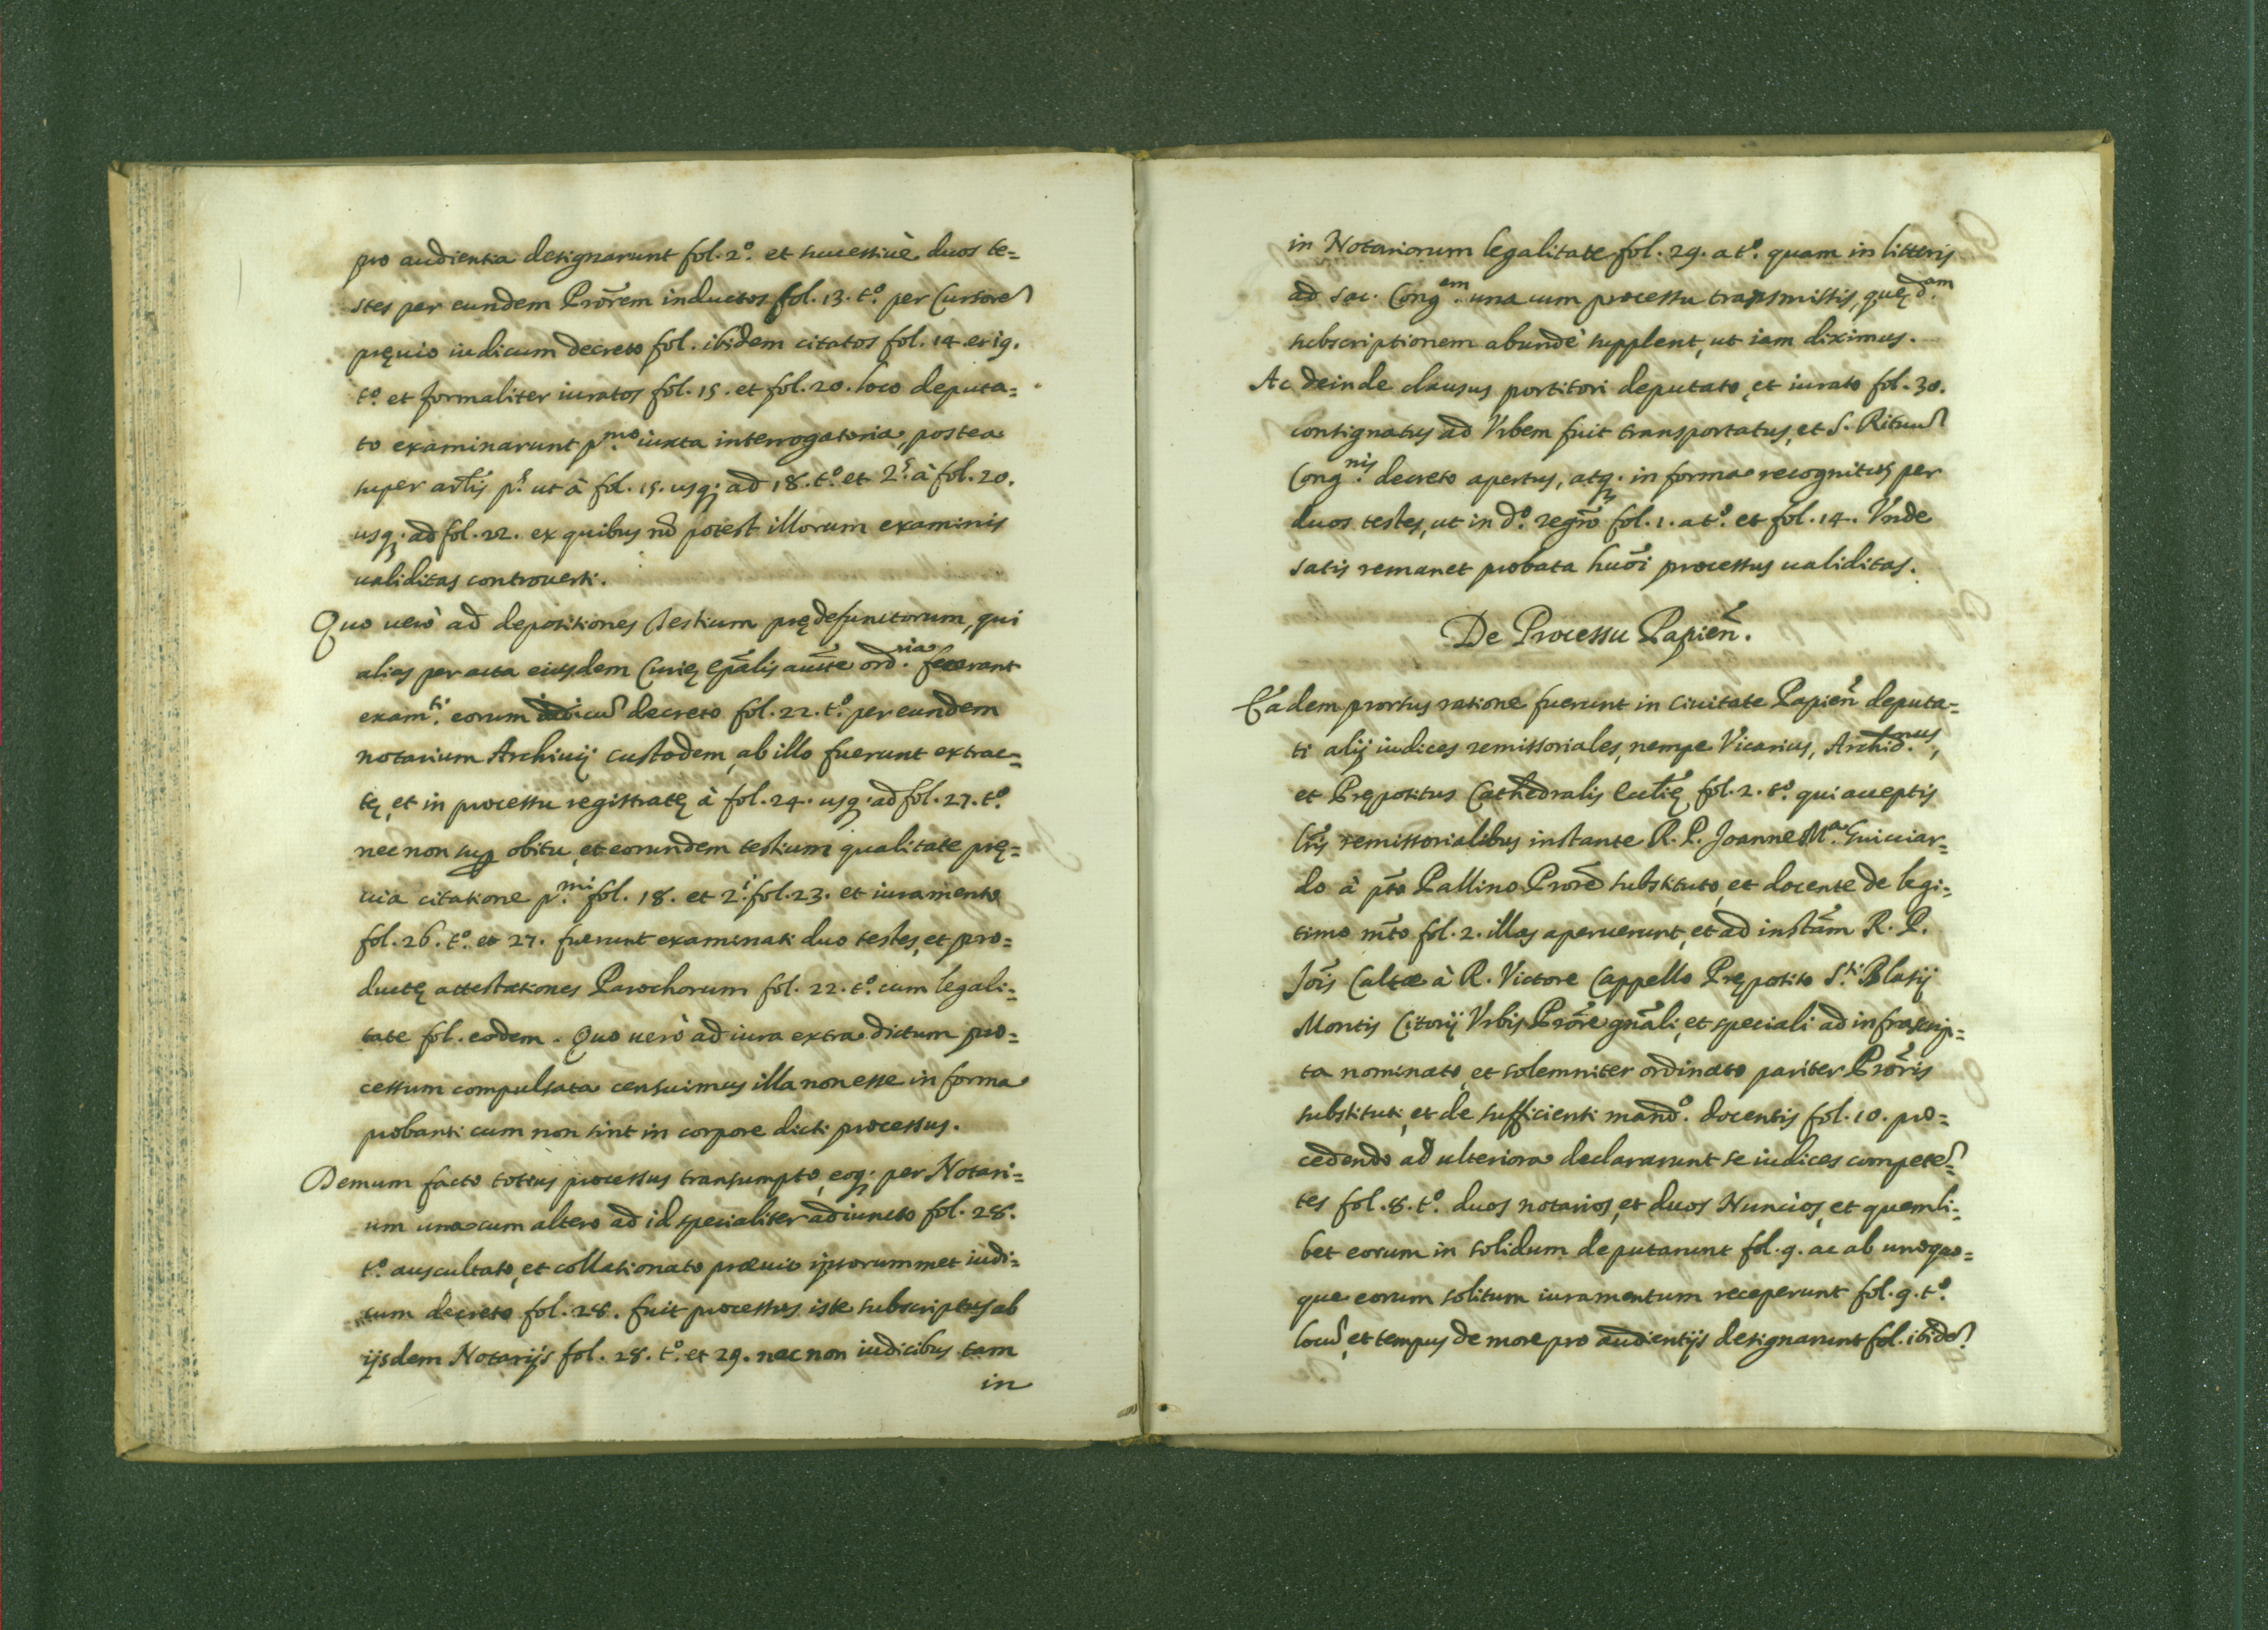 pro audientia designarunt fol. 2º. et successiuè duos te=
stes per eundem Prorẽm inductos fol. 13. tº. per Cursorẽ
pręuio iudicum decreto fol. ibidem citatos fol. 14. et 19.
tº. et formaliter iuratos fol. 15. et fol. 20. loco deputa=
to examinarunt p.mo iuxta interrogatoria, postea
super artlis p.s ut à fol. 15. usq; ad 18. tº. et 2.s à fol. 20.
usq; ad fol. 22. ex quibus nõ potest illorum examinis
ualiditas controuerti.
Quo uerò ad depositiones Testium prędefunctorum, qui
alias per acta eiusdem Curię Epãlis aucte ord.ria fuerant
exam.ti eorum iudicũ decreto fol. 22. tº. per eundem
notarium Archiuij custodem, ab illo fuerunt extrac=
tę, et in processu registratę à fol. 24. usq; ad fol. 27. tº.
nec non sup obitu, et eorundem testium qualitate prę=
uia citatione p.mi fol. 18. et 2.i fol. 23. et iuramento
fol. 26. tº. et 27. fuerunt examinati duo testes, et pro=
ductę attestationes Parochorum fol. 22. tº. cum legali=
tate fol. eodem. Quo uerò ad iura extra dictum pro=
cessum compulsata censuimus illa non esse in forma
probanti cum non sint in corpore dicti processus.
Demum facto totius processus transumpto, eoq; per Notari=
um una cum altero ad id specialiter adiuncto fol. 28.
tº. auscultato, et collationato præuio ipsorummet iudi=
cum decreto fol. 28. fuit processus iste subscriptus ab
ijsdem Notarijs fol. 28. tº. et 29. nec non iudicibus tam
in
in Notariorum legalitate fol. 29. a tº. quam in litteris
ad Sac. Cong.em una cum processu transmissis, quę d.am
subscriptionem abundè supplent, ut iam diximus.
Ac deinde clausus portitori deputato, et iurato fol. 30.
consignatus ad Vrbem fuit transportatus, et S. Rituũ
Cong.nis decreto apertus, atq; in forma recognitus per
duos testes, ut in dº. regrõ fol. 1. a tº. et fol. 14. Vnde
satis remanet probata huõi processus ualiditas.
De Processu Papieñ.
Eadem prorsus ratione fuerunt in Ciuitate Papieñ deputa=
ti alij iudices remissoriales, nempe Vicarius, Archid.nus,
et Prępositus Cathedralis Ecclię fol. 2. tº. qui acceptis
lr̃is remissorialibus instante R. P. Joanne M.a Guicciar=
do à pto Pallino Prorẽ substituto, et docente de legi=
timo mto fol. 2. illas aperuerunt, et ad instãm R. P.
Joĩs Caltæ à R. Victore Cappello Pręposito S.ti Blasij
Montis Citorij Vrbis Prõre gnãli, et speciali ad infrascrip=
ta nominato, et solemniter ordinato pariter Prõris
substituti, et de sufficienti mandº. docentis fol. 10. pro=
cedendo ad ulteriora declararunt se iudices competẽ=
tes fol. 8. tº. duos notarios, et duos Nuncios, et quemli=
bet eorum in solidum deputarunt fol. 9. ac ab unoquo=
que eorum solitum iuramentum receperunt fol. 9. tº.
locũ, et tempus de more pro audientijs designarunt fol. ibidẽ.